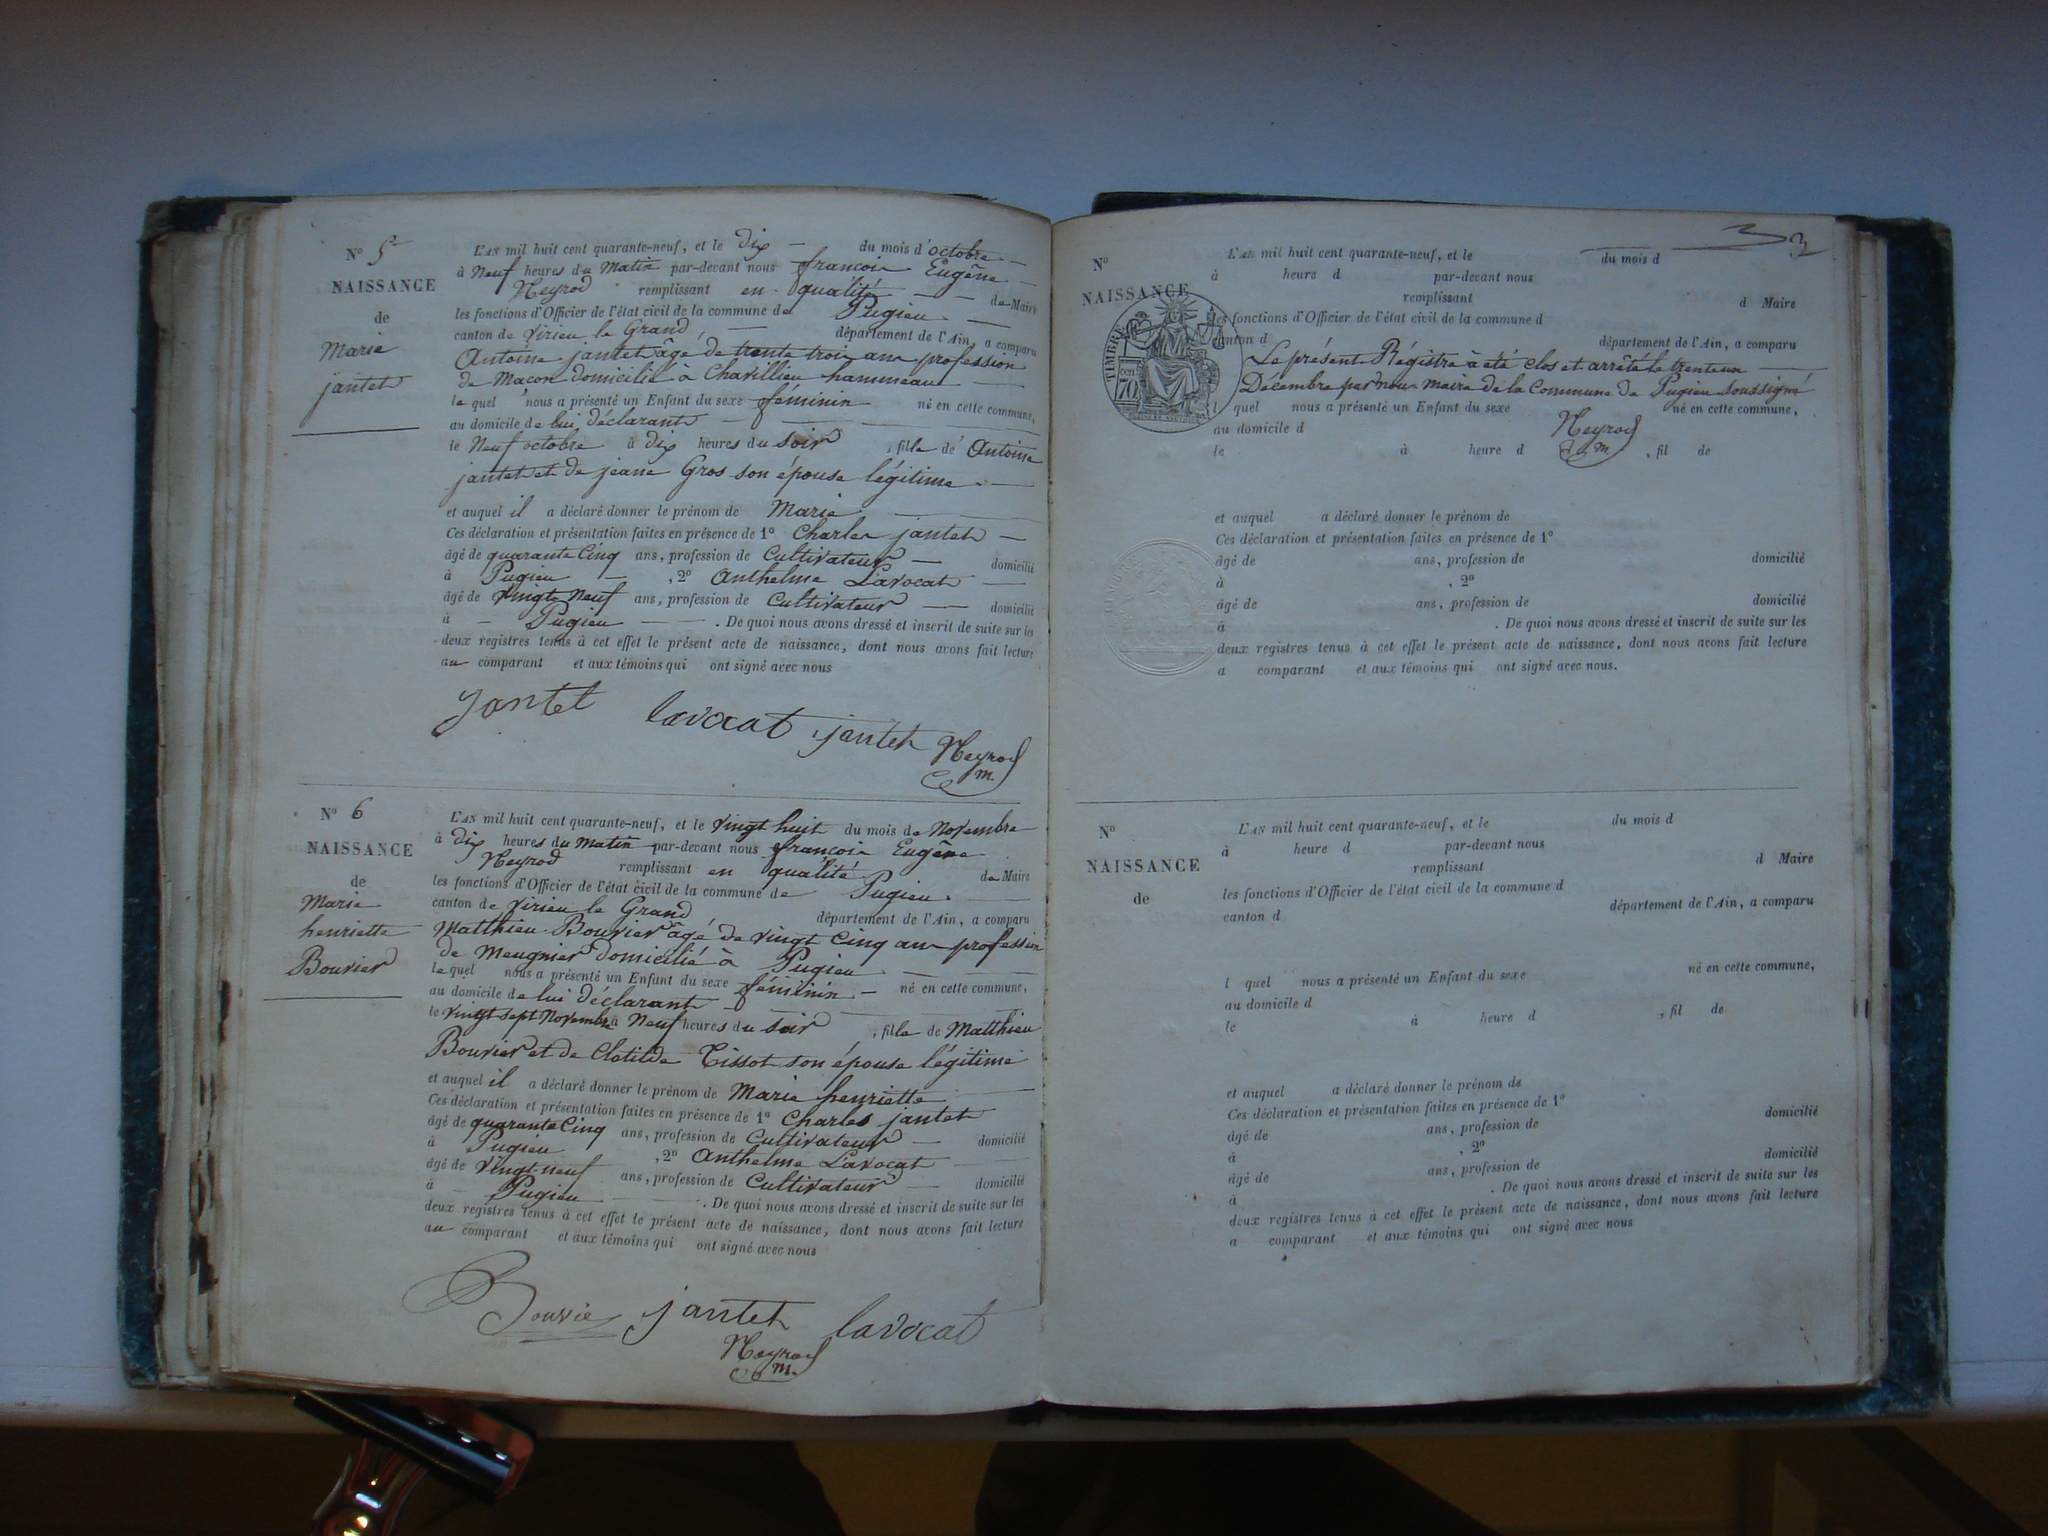 N° 5
NAISSANCE
de
Marie
jantet
L'AN mil huit cent quarante-neuf, et le dix du mois d'octobre
à Neuf heures du Matin par-devant nous francois Eugêne
Neyrod remplissant en qualité de Maire
les fonctions d'Officier de l'état civil de la commune de Pugieu
canton de Virieu le Grand, département de l'Ain, a comparu
Antoine jantet âgé de trente trois ans profession
de Macon domicilié à Chavillieu hammeau
le quel nous a présenté un Enfant du sexe féminin né en cette commune,
au domicile de lui déclarant
le Neuf octobre à dix heures du soir, fille de Antoine
jantet et de jeane Gros son épouse légitime
et auquel il a déclaré donner le prénom de Marie
Ces déclaration et présentation faites en présence de 1° Charles jantet
âgé de quarante Cinq ans, profession de Cultivateur domicilié
à Pugieu, 2° Anthelme Lavocat
âgé de Vingt Neuf ans, profession de Cultivateur domicilié
à Pugieu. De quoi nous avons dressé et inscrit de suite sur les
deux registres tenus à cet effet le présent acte de naissance, dont nous avons fait lecture
au comparant et aux témoins qui ont signé avec nous
Jantet lavocat jantet Neyrod
m.
N° 6
NAISSANCE
de
Marie
henriette
Bouvier
L'AN mil huit cent quarante-neuf, et le vingt huit du mois de Novembre
à dix heures du matin par-devant nous francois Eugêne
Neyrod remplissant en qualité de Maire
les fonctions d'Officier de l'état civil de la commune de Pugieu.
canton de Virieu le Grand département de l'Ain, a comparu
Matthieu Bouvier âgé de vingt Cinq ans profession
de Meugnier domicilié à Pugieu
le quel nous a présenté un Enfant du sexe féminin né en cette commune,
au domicile de lui déclarant
le vingt sept Novembre à Neuf heures du soir, fille de Matthieu
Bouvier et de Clotilde Tissot son épouse légitime
et auquel il a déclaré donner le prénom de Marie henriette
Ces déclaration et présentation faites en présence de 1° Charles jantet
âgé de quarante Cinq ans, profession de Cultivateur domicilié
à Pugieu, 2° Anthelme Lavocat
âgé de Vingt-neuf ans, profession de Cultivateur domicilié
à Pugieu. De quoi nous avons dressé et inscrit de suite sur les
deux registres tenus à cet effet le présent acte de naissance, dont nous avons fait lecture
au comparant et aux témoins qui ont signé avec nous
Bouvie jantet lavocat
Neyrod
m.
3
N°
NAISSANCE
TIMBRE
70
L'AN mil huit cent quarante-neuf, et le du mois d
à heure d par-devant nous
remplissant d Maire
les fonctions d'Officier de l'état civil de la commune d
canton d département de l'Ain, a comparu
Le présent Régistre à été clos et arrêté le trente un
Décembre par nous maire de la Commune de Pugieu soussigné
l quel nous a présenté un Enfant du sexe né en cette commune,
au domicile d Neyrod
le à heure d m. , fil de
et auquel a déclaré donner le prénom de
Ces déclaration et présentation faites en présence de 1°
âgé de ans, profession de domicilié
à , 2°
âgé de ans, profession de domicilié
à . De quoi nous avons dressé et inscrit de suite sur les
deux registres tenus à cet effet le présent acte de naissance, dont nous avons fait lecture
a comparant et aux témoins qui ont signé avec nous.
N°
NAISSANCE
de
L'AN mil huit cent quarante-neuf, et le du mois d
à heure d par-devant nous
remplissant d Maire
les fonctions d'Officier de l'état civil de la commune d
canton d département de l'Ain, a comparu
l quel nous a présenté un Enfant du sexe né en cette commune,
au domicile d
le à heure d , fil de
et auquel a déclaré donner le prénom de
Ces déclaration et présentation faites en présence de 1°
âgé de ans, profession de domicilié
à , 2°
âgé de ans, profession de domicilié
à . De quoi nous avons dressé et inscrit de suite sur les
deux registres tenus à cet effet le présent acte de naissance, dont nous avons fait lecture
a comparant et aux témoins qui ont signé avec nous